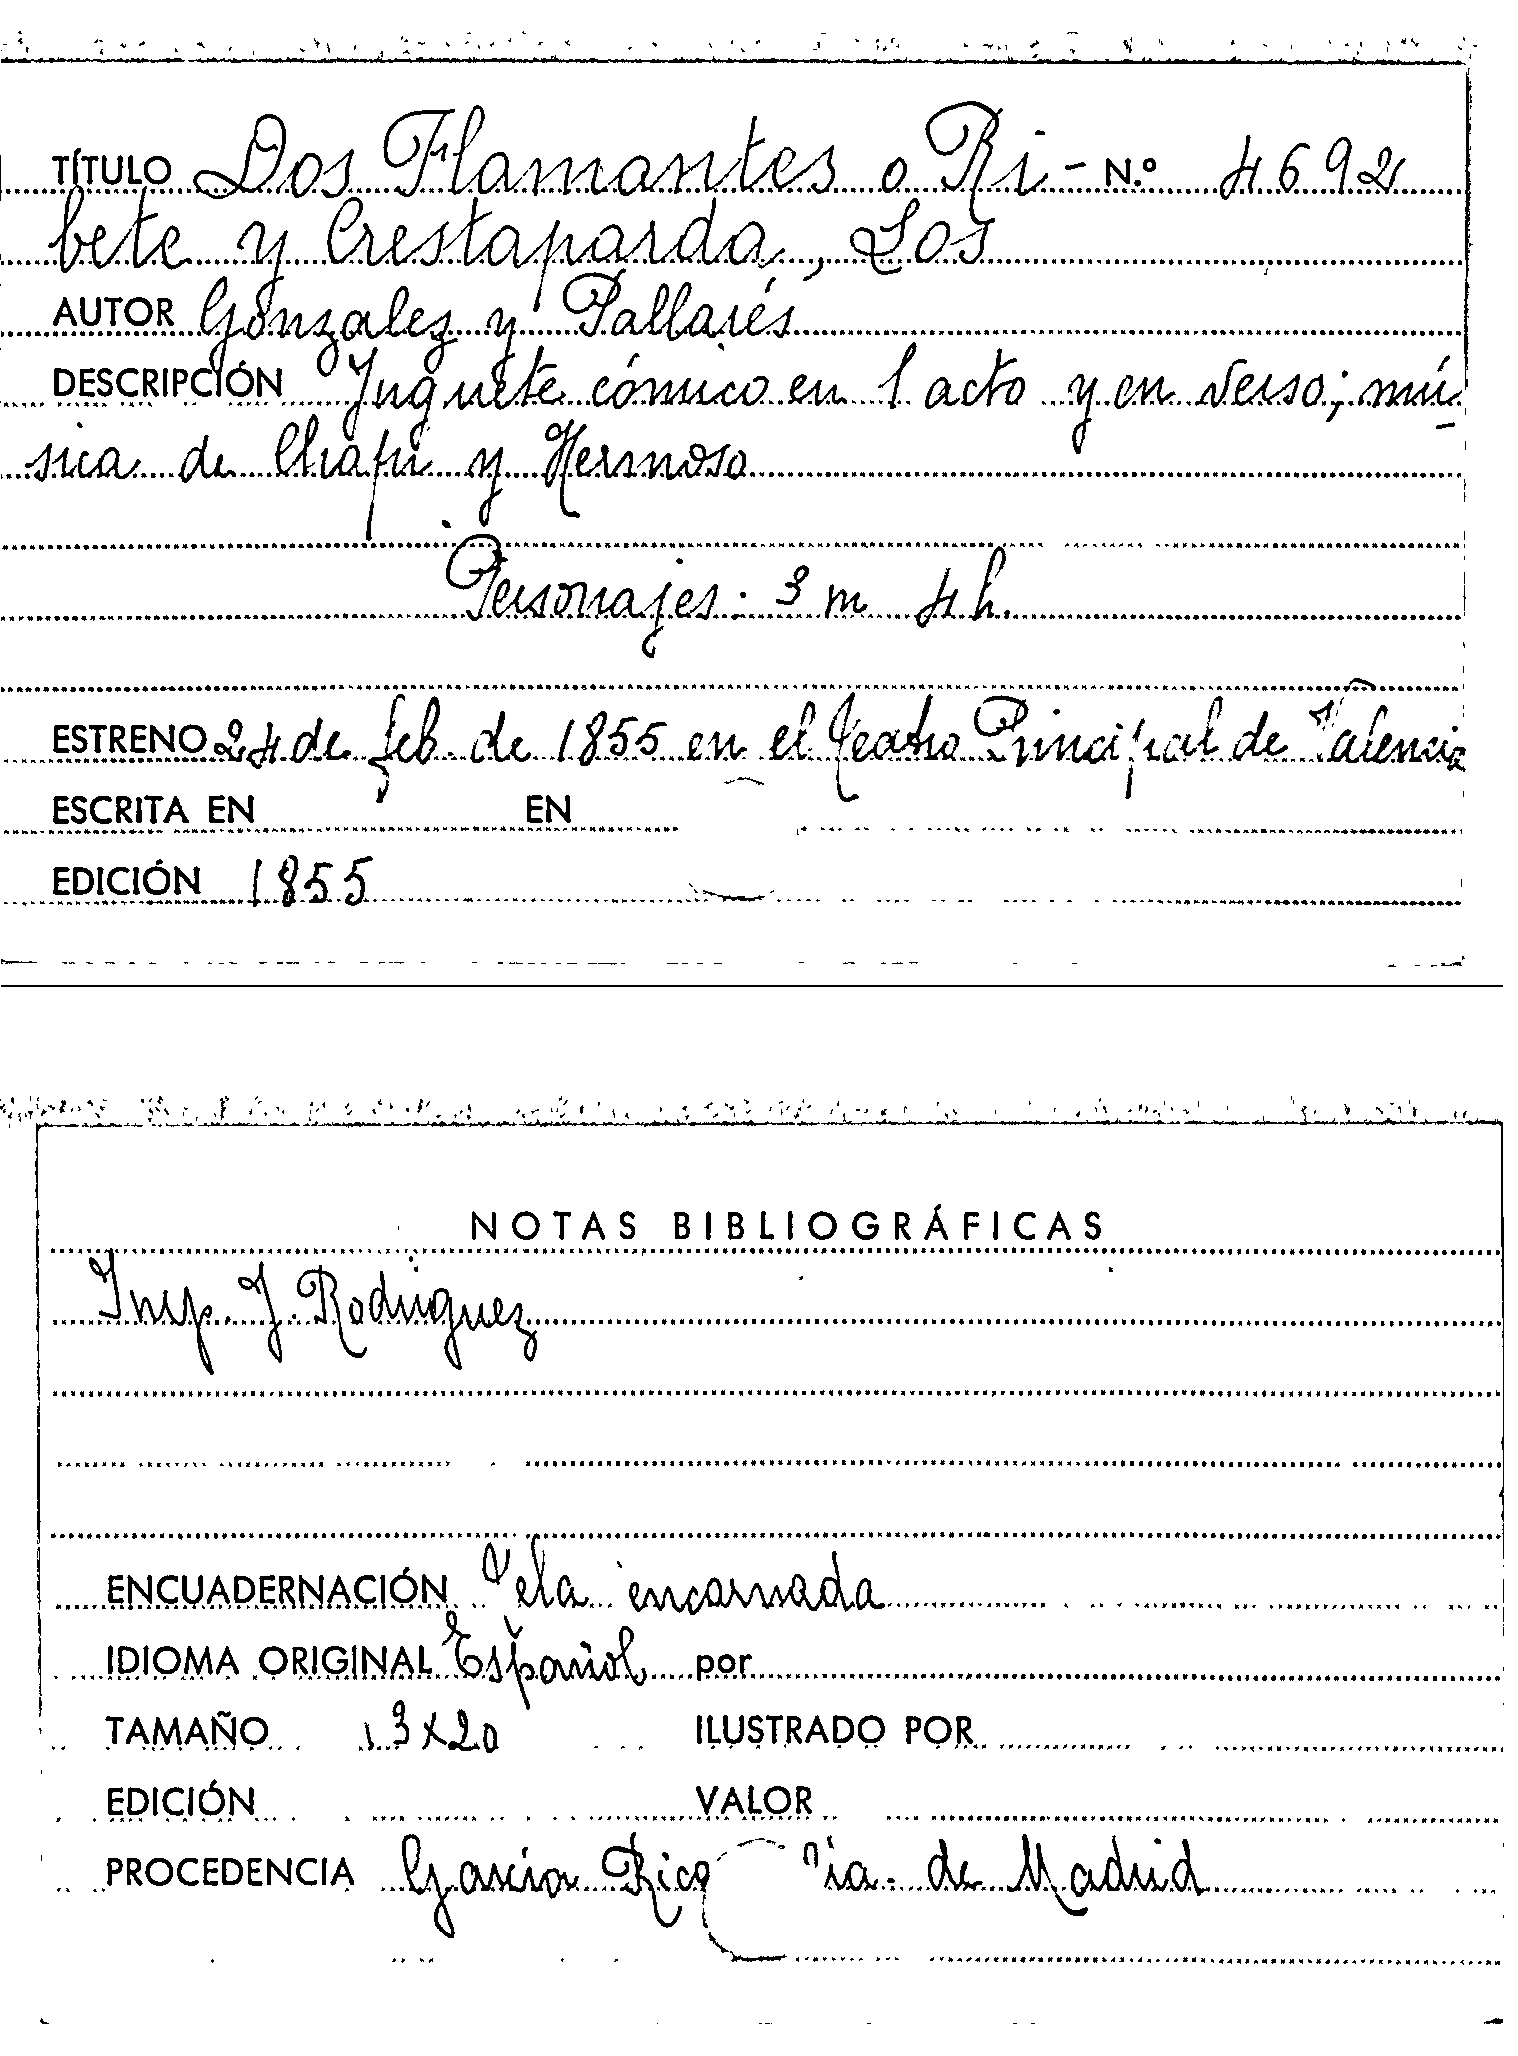 TÍTULO Dos Flamantes o Ri- N.º 4692
bete y Crestaparda, Los
AUTOR Gonzalez y Pallarés
DESCRIPCIÓN Juguete cómico en 1 acto y en verso; mú
sica de Chapí y Hermoso
Personajes: 3 m 4 h.
ESTRENO 24 de feb. de 1855 en el Teatro Principal de Valencia
ESCRITA EN EN
EDICIÓN 1855
NOTAS BIBLIOGRÁFICAS
Imp. J. Rodriguez
ENCUADERNACIÓN Tela encarnada
IDIOMA ORIGINAL Español por
TAMAÑO 13x20 ILUSTRADO POR
EDICIÓN VALOR
PROCEDENCIA García Rico Cía. de Madrid